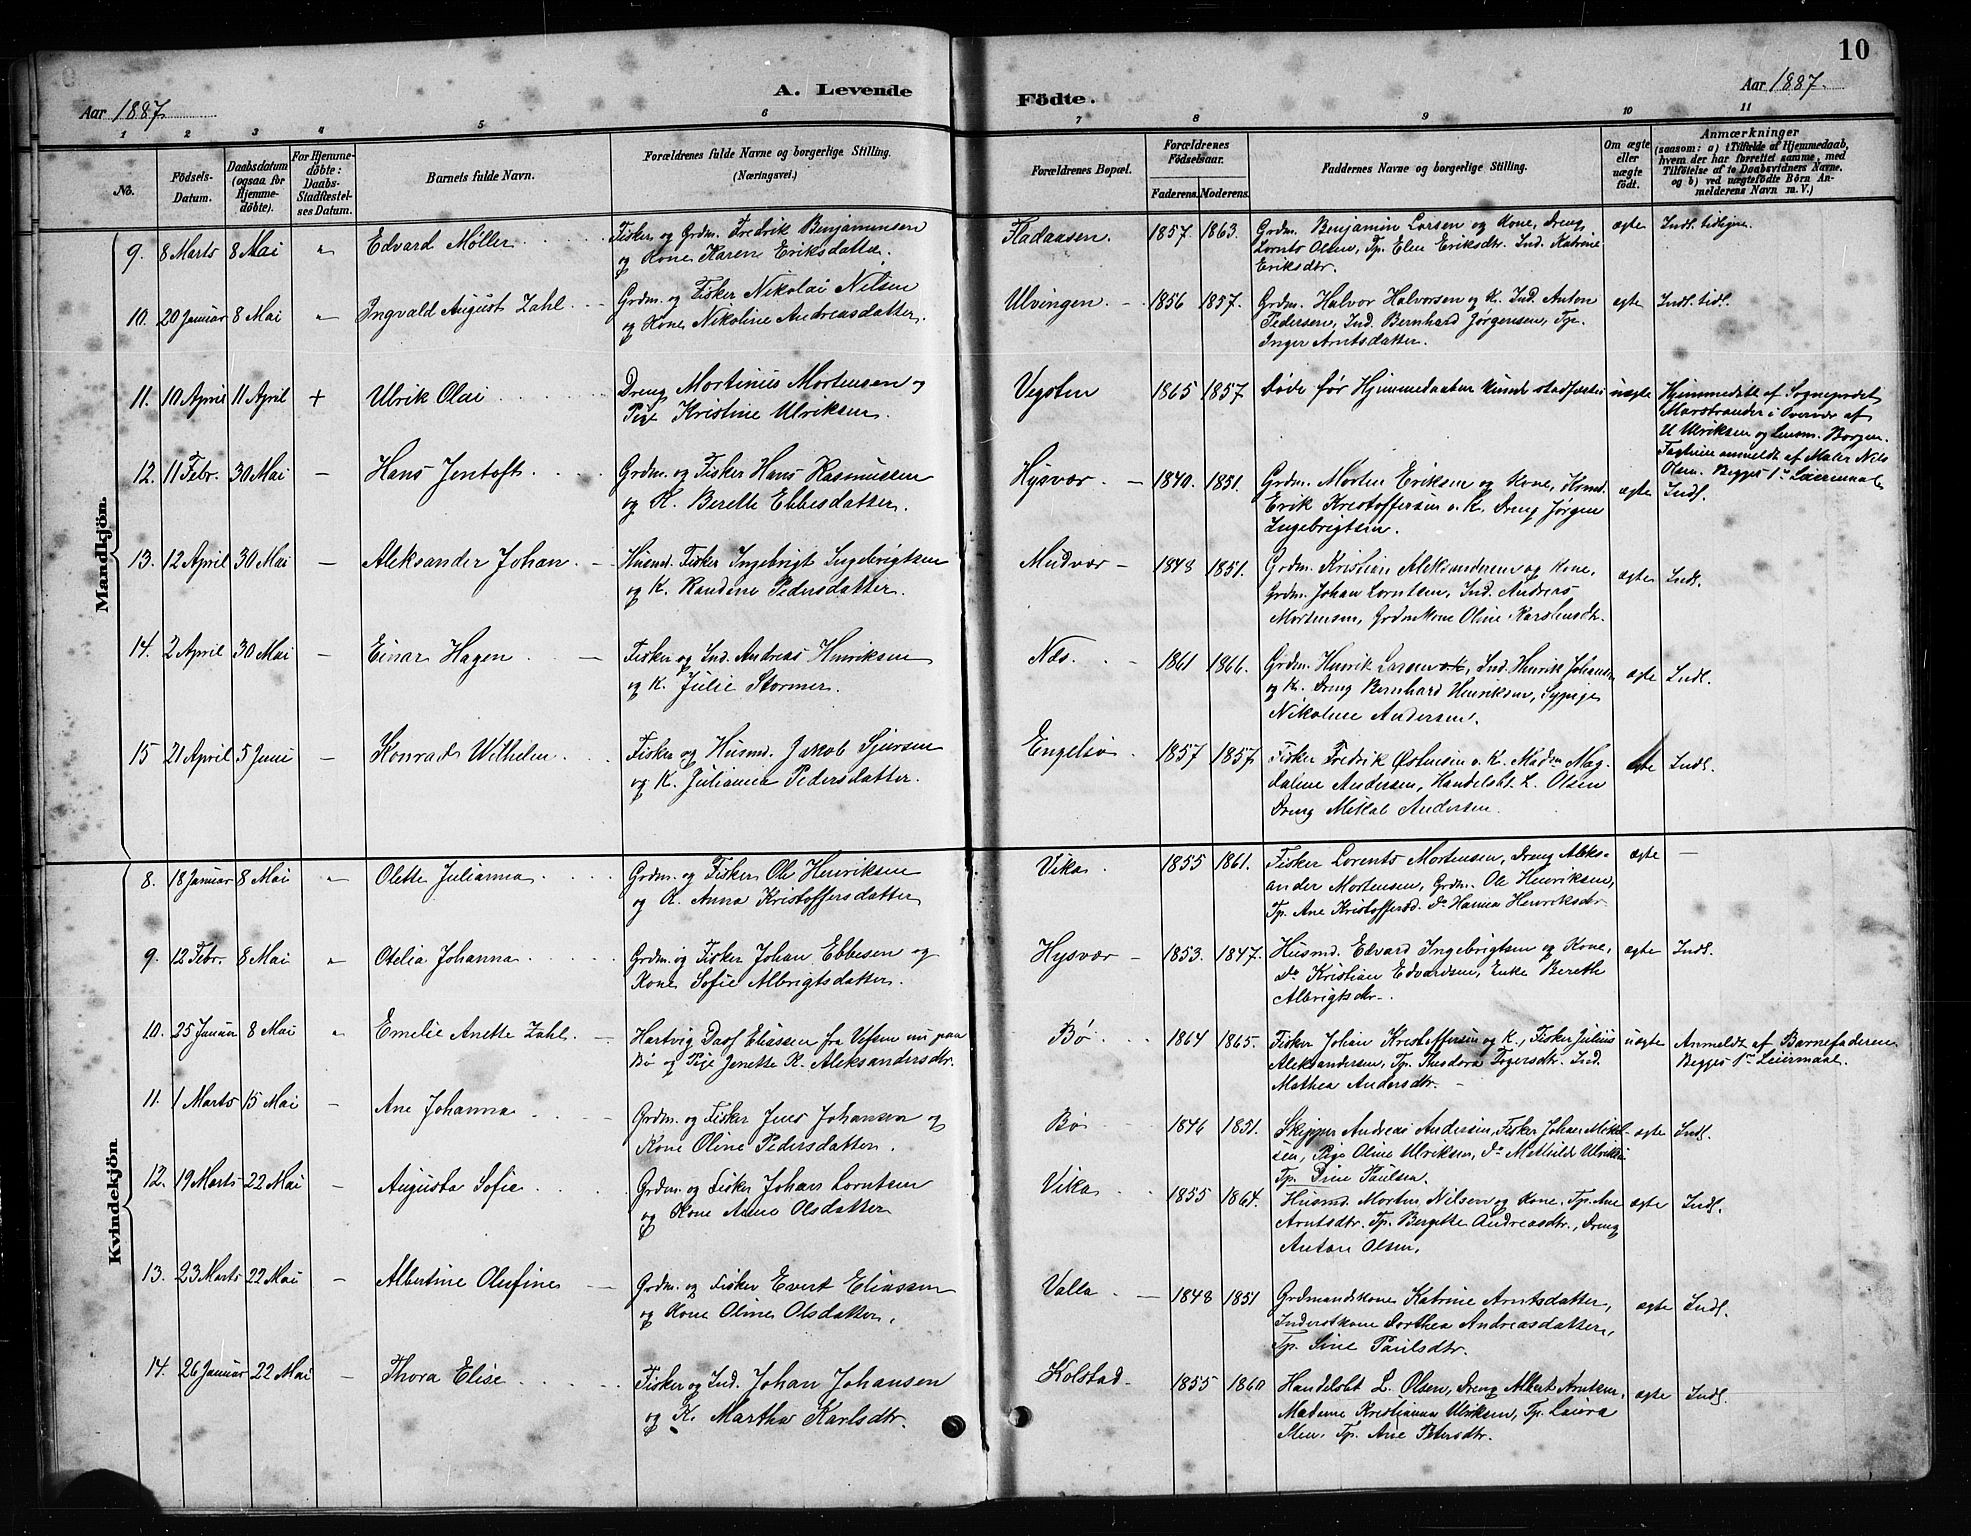 10
A. Levende Födte.
Aar 1887.
Aar 1887.
1 2 3 4 5 6 7 8 9 10 11
No.
Födsels-
Datum.
Daabsdatum
(ogsaa for
Hjemme-
døbte).
For Hjemme-
døbte:
Daabs-
Stadfæstel-
ses Datum.
Barnets fulde Navn.
Forældrenes fulde Navne og borgerlige Stilling.
(Næringsvei.)
Forældrenes Bopæl.
Forældrenes
Födselsaar.
Faderens. Moderens.
Faddernes Navne og borgerlige Stilling.
Om ægte
eller
uægte
født.
Anmærkninger
(saasom: a) i Tilfælde af Hjemmedaab,
hvem der har forrettet samme, med
Tilföielse af to Daabsvidners Navne,
og b) ved uægtefödte Börn An-
melderens Navn m. V.)
Mandkjön.
9. 8 Marts 8 Mai " Edvard Möller Fisker og Grdm. Fredrik Benjaminsen
og Kone Karen Eriksdatter.
Fladaasen. 1857 1863. Grdm. Benjamin Larsen og Kone, Dreng
Lornts Olsen, Tp. Elen Eriksdtr. Ind. Katrine
Eriksdtr.
ægte Indl. tidligere.
10. 20 Januar 8 Mai " Ingvald August Zahl Grdm. og Fisker Nikolai Nilsen
og Kone Nikoline Andreasdatter.
Ulvingen 1856 1857. Grdm. Halvor Halvorsen og K. Ind. Anton
Pedersen, Ind. Bernhard Jørgensen, Tp.
Inger Arntsdatter.
ægte Indl. tidl.
11. 10 April 11 April + Ulrik Olai Dreng Mortinus Mortensen og
Pige Kristine Ulriksen.
Vegsten 1865 1857 Døde før Hjemmedaaben kunde stadfæstes
uægte Hjemmedøbt af Sogneprest
Marstrander i Overvær af
U Ulriksen og Lensm. Borgen.
Fagteren anmeldt af Maler Nils
Olsen. Begges 1ste Leiermaal
12. 11 Febr. 30 Mai - Hans Jentoft Grdm. og Fisker Hans Rasmussen
og K. Berette Ebbesdatter.
Hysvær 1840. 1851. Grdm. Morten Eriksen og Kone, Husmd.
Erik Kristoffersen o. K. Dreng Jørgen
Ingebrigtsen.
ægte Indl.
13. 12 April 30 Mai - Aleksander Johan Husmd. Fisker Ingebrigt Ingebrigtsen
og K. Randine Pedersdatter.
Mudvær 1848 1851. Grdm. Kristian Aleksandersen og Kone,
Grdm. Johan Lorntsen, Ind. Andreas
Mortensen, Grdmkone Oline Karstensdtr.
ægte Indl.
14. 2 April 30 Mai - Einar Hagen Fisker og Ind. Andreas Henriksen
og K. Julie Stormer.
Nes. 1861 1866. Grdm. Henrik Larsen o. K., Ind. Henrik Johansen
og K. Dreng Bernhard Henriksen, Sypige
Nikoline Andersen.
ægte Indl.
15 21 April 5 Juni - Konrad Wilhelm Fisker og Husmd. Jakob Sjursen
og K. Julianna Pedersdatter.
Engelsø 1857 1857 Fisker Fredrik Østensen o. K. Madm Mag-
dalene Andersen, Handelsbt. L. Olsen
Dreng Mikal Andersen.
ægte Indl.
Kvindekjön
8. 18 Januar 8 Mai " Olette Julianna Grdm. og Fisker Ole Henriksen
og K. Anna Kristoffersdatter
Vika 1855 1861. Fisker Lorents Mortensen, Dreng Aleks-
ander Mortensen, Grdm. Ole Henriksen,
Tp. Ane Kristoffersd. Do Hanna Henriksdtr.
ægte -
9. 12 Febr. 8 Mai " Otelia Johanna Grdm. og Fisker Johan Ebbesen og
Kone Sofie Albrigtsdatter.
Hysvær 1853. 1847. Husmd. Edvard Ingebrigtsen og Kone,
Do Kristian Edvardsen, Enke Bereth
Albrigtsdtr.
ægte Indl.
10. 25 Januar 8 Mai " Emelie Anette Zahl Hartvig Daof Eliassen fra Vefsen nu paa
Bø og Pige Jenette K. Aleksandersdtr.
Bø 1864 1865. Fisker Johan Kristoffersen og K., Fisker Julius
Aleksandersen, Tp. Theodora Togersdtr. Ind.
Mathea Andersdtr.
uægte Anmeldt af Barnefaderen
Begges 1ste Leiermaal.
11. 1 Marts 15 Mai - Ane Johanna Grdm. og Fisker Jens Johansen og
Kone Oline Pedersdatter.
Bø 1846 1851. Skipper Andreas Andersen, Fisker Johan Mikal-
sen, Pige Oline Ulriksen, Do Mathilde Ulriksen
Tp. Dine Paulsen.
ægte Indl.
12. 19 Marts 22 Mai - Augusta Sofie Grdm. og Fisker Johan Lorntsen
og Kone Anne Olsdatter
Vika 1855 1864. Husmd. Morten Nilsen og Kone, Tp. Ane
Arntsdtr. Tp. Bergitte Andreasdtr., Dreng
Anton Olsen.
ægte Indl.
13. 23 Marts 22 Mai - Albertine Olufine Grdm. og Fisker Evert Eliassen
og Kone Oline Olsdatter.
Valla 1848 1851 Grdmandskone Katrine Arntsdatter,
Inderstkone Dorthea Andreasdatter,
Tp. Sine Paulsdtr.
ægte Indl.
14. 26 Januar 22 Mai - Thora Elise Fisker og Ind. Johan Johansen
og K. Martha Karlsdtr.
Kolstad 1855 1860 Handelsbt L. Olsen, Dreng Albert Arntsen,
Madame Kristianna Ulriksen, Tp. Laura
Moen, Tp. Ane Petersdtr.
ægte Indl.